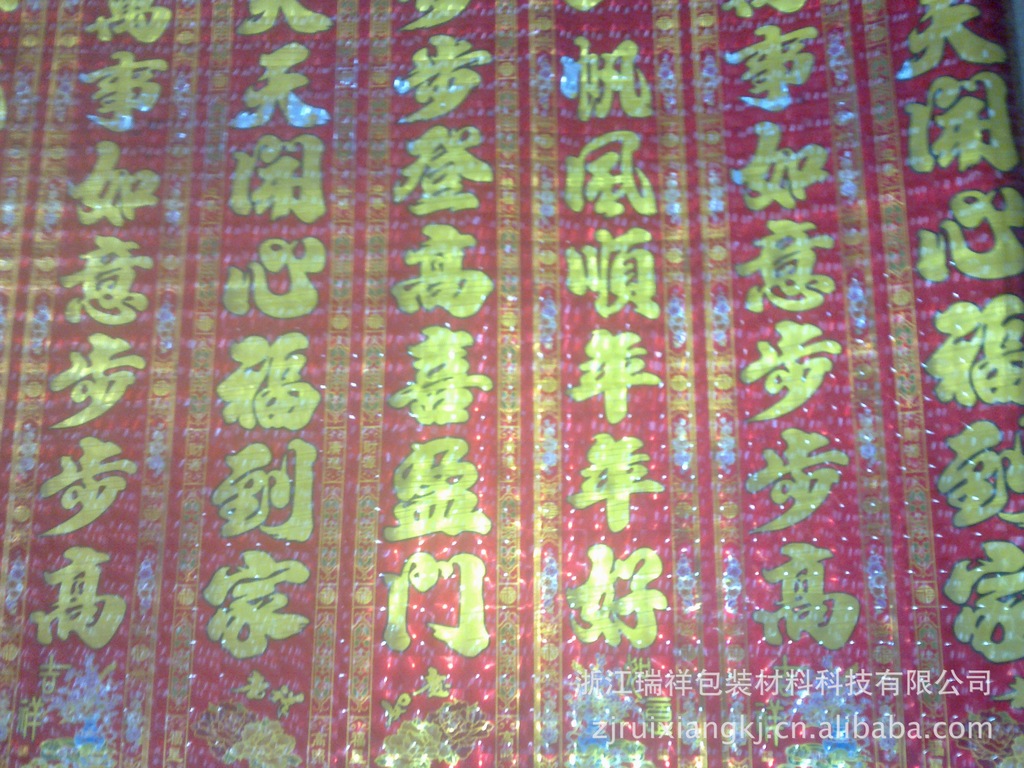 萬事如意步步高
天天開心福到家
步步登高喜盈門
帆風順年年好
萬事如意步步高
天開心福到家
吉祥
浙江瑞祥包装材料科技有限公司
zjruixiangkj.cn.alibaba.com